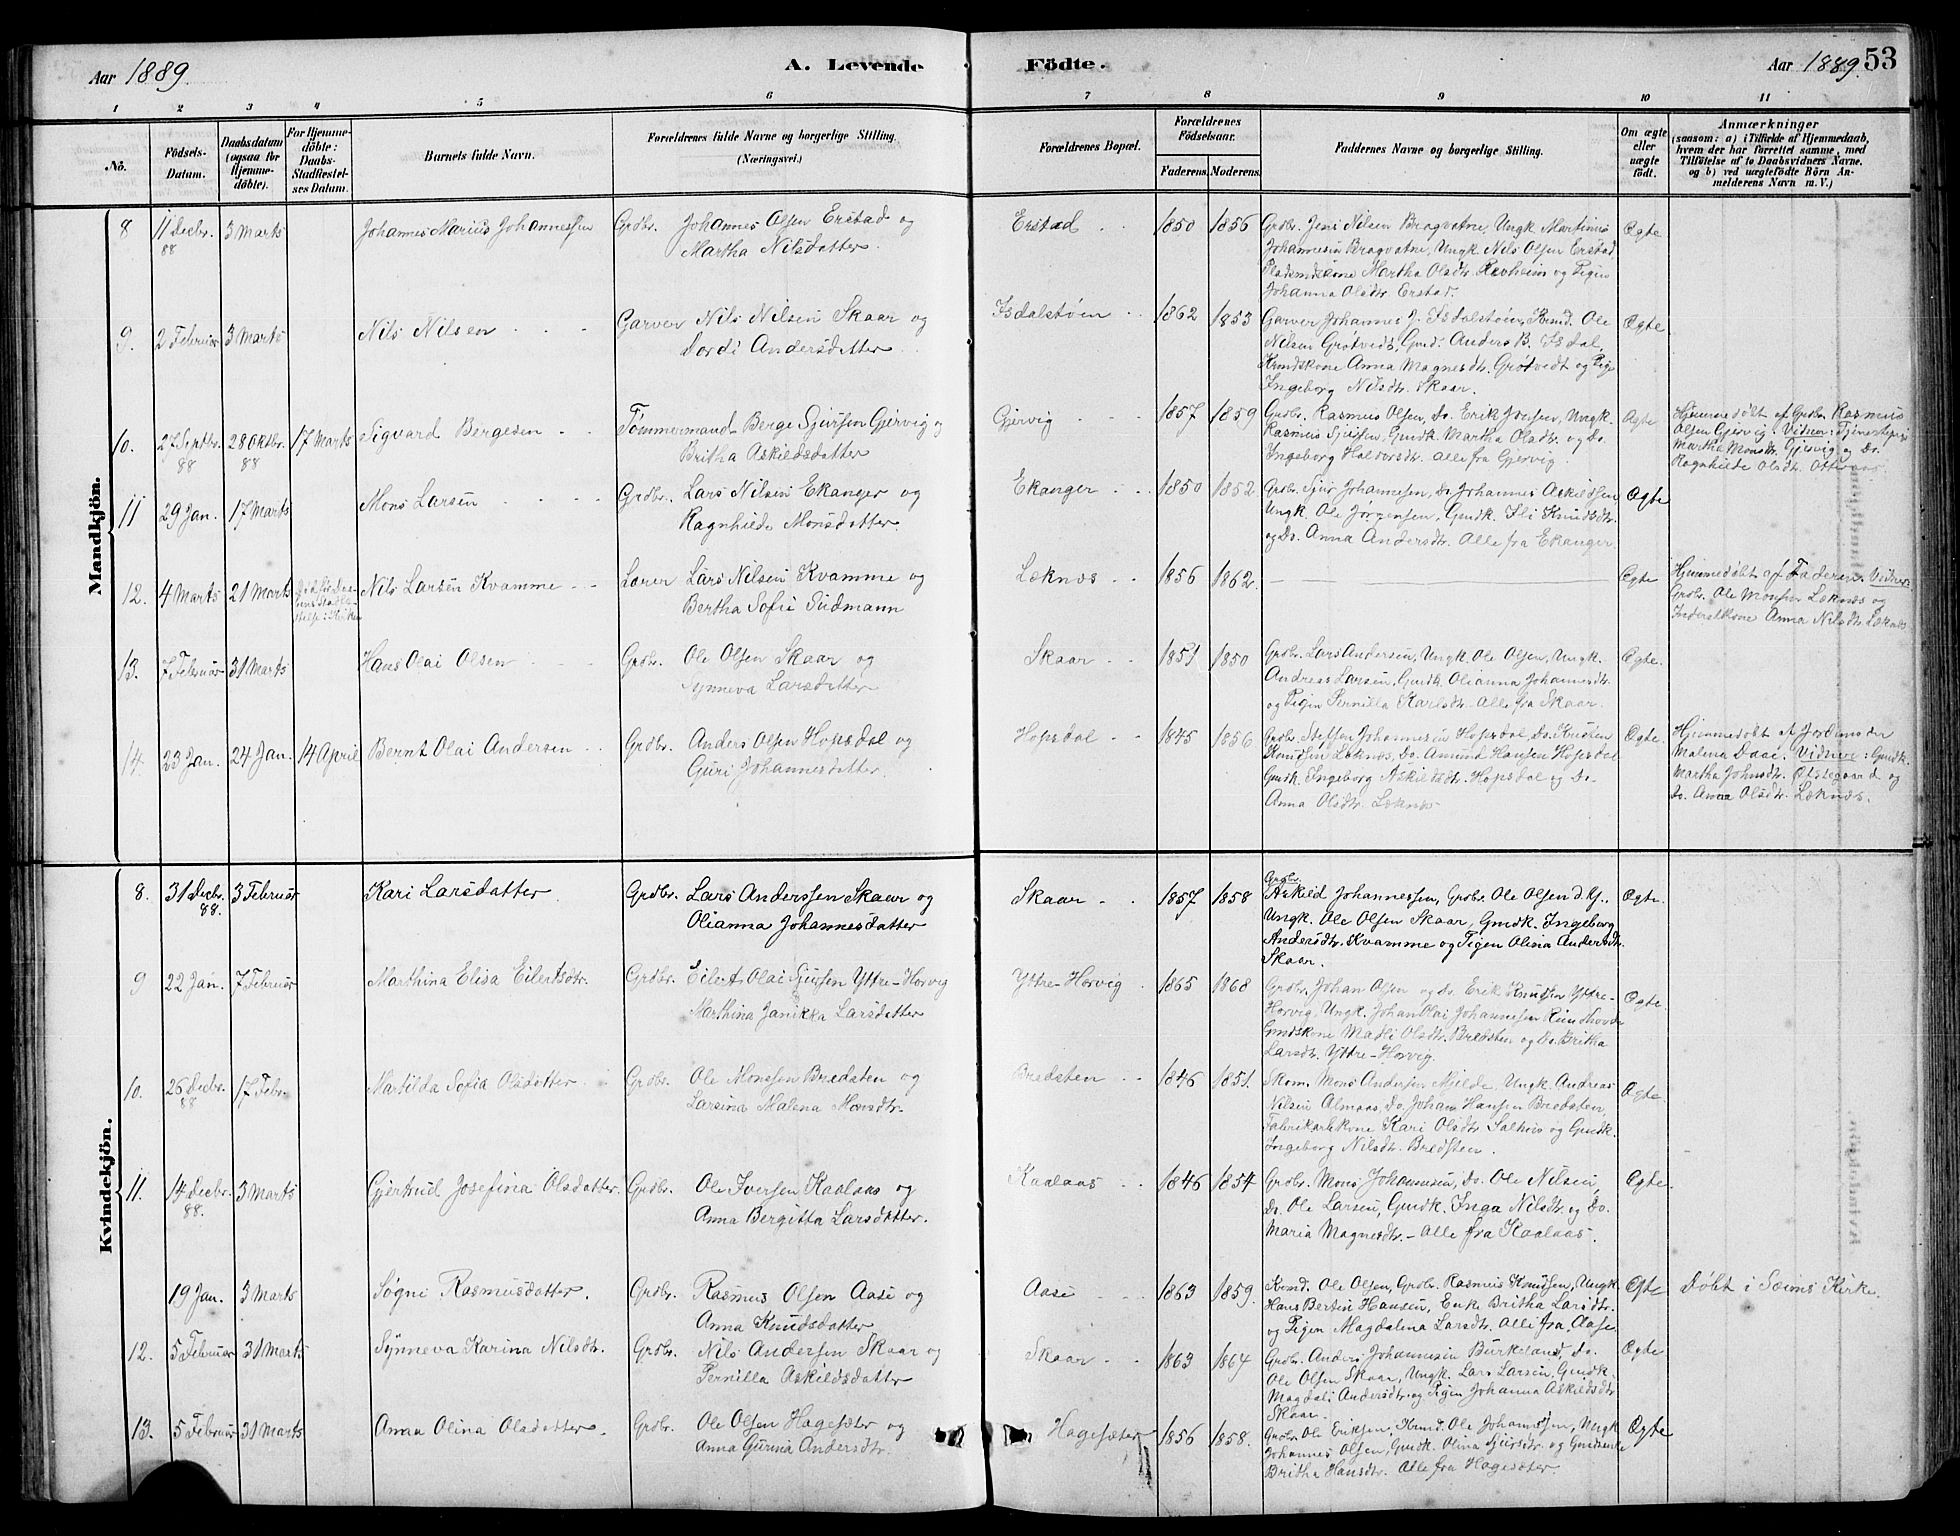 Aar 1889.
A. Levende Födte.
Aar 1889. 53
1 2 3 4 5 6 7 8 9 10 11
No.
Födsels-Datum.
Daabsdatum (ogsaa for Hjemme-döbte).
For Hjemme-döbte: Daabs-Stadfæstel-ses Datum.
Barnets fulde Navn.
Forældrenes fulde Navne og borgerlige Stilling.
(Næringsvei.)
Forældrenes Bopæl.
Forældrenes Födselsaar.
Faderens. Moderens.
Faddernes Navne og borgerlige Stilling.
Om ægte eller uægte födt.
Anmærkninger
(saasom: a) i Tilfælde af Hjemmedaab,
hvem der har forrettet samme, med
Tilföielse af to Daabsvidners Navne,
og b) ved uægtefödte Börn An-
melderens Navn m. V.)
Mandkjön.
8 11 Decbr. 88 3 Marts Johannes Marius Johannessen Grdbr. Johannes Olsen Erstad og
Martha Nilsdatter.
Erstad 1850 1856 Grdbr. Jens Nilsen Bragvatne, Ungk. Martinus
Johannesen Bragvatne, Ungk. Nils Olsen Erstad,
Martha Olsdtr. Revheim og Pigen
Johanna Olsdtr. Erstad.
Ægte
9. 2 Februar 3 Marts Nils Nilsen Garver Nils Nilsen Skaar og
Dordi Andersdatter
Isdalstøen 1862 1853 Garver Johannes J. Isdalstøen, Krmd. Ole
Nilsen Grøtvedt, Gmd. Anders B. Isdal,
Krmdskone Anna Magnesdtr. Grøtvedt og Pige
Ingeborg Nilsdtr. Skaar.
Ægte
10. 27 Septbr. 88 28 Oktbr. 88 17 Marts Sigvard Bergesen Tømmermand Berge Sjursen Gjervig og
Britha Askildsdatter
Gjervig 1857 1859 Grdbr. Rasmus Olsen, Do. Erik Jonsen, Ungk.
Rasmus Sjursen, Gmdk. Martha Olsdtr. og Do.
Ingeborg Haldorsdtr. Alle fra Gjervig.
Ægte
Hjemmedøbt af Grdbr. Rasmus
Olsen Gjervig. Vidner: Tjenestepige
Martha Monsdtr. Gjervig og Do.
Ragnhilde Olsdtr.
11 29 Jan. 17 Marts Mons Larsen Grdbr. Lars Nilsen Ekanger og
Ragnhilde Monsdatter
Ekanger 1850 1852 Grdbr. Sjur Johannesen, Do. Johannes Askildsen,
Ungk. Ole Jørgensen, Gmdk. Eli Knudsdtr.
og Do. Anna Andersdtr. Alle fra Ekanger
Ægte
12. 4 Marts 21 Marts Nils Larsen Kvamme Lærer Lars Nilsen Kvamme og
Bertha Sofie Sudmann
Læknes 1856 1862. Ægte
Hjemmedøbt af Faderen. Vidner
Grdbr. Ole Monsen Læknes og
Inderstkone Anna Nilsdtr. Læknes.
13. 7 Februar 31 Marts Hans Olai Olsen Grdbr. Ole Olsen Skaar og
Synneva Larsdatter
Skaar 1851 1850 Grdbr. Lars Andersen, Ungk. Ole Olsen, Ungk.
Andreas Larsen, Gmdk. Olianna Johannesdtr.
og Pigen Pernilla Karlsdtr. Alle fra Skaar.
Ægte.
14. 23 Jan. 24 Jan. 14 April Bernt Olai Andersen Grdbr. Anders Olsen Hopsdal og
Guri Johannesdatter.
Hopsdal 1845 1856 Grdbr. Steffen Johannesen Hopsdal, Do.
Knudsen Læknes, Do. Amund Hansen Hopsdal
Gmdk. Ingeborg Askildsdtr. Hopsdal og Do.
Anna Olsdtr. Læknes
Ægte.
Hjemmedøbt af Jordmoder
Malena Daae. Vidner: Gmdk.
Martha Johnsdtr. og
Do. Anna Olsdtr. Læknes.
Kvindekjön.
8. 31 Decbr. 88. 3 Februar Kari Larsdatter Grdbr. Lars Anderssen Skaar og
Olianna Johannesdatter
Skaar 1857 1858 Grdbr.
Askild Johannessen, Grdbr. Ole Olsen d.Y.,
Ungk. Ole Olsen Skaar, Gmdk. Ingeborg
Andersdtr. Kvamme og Pigen Olina Andersdtr.
Skaar.
Ægte.
9 22 Jan. 7 Februar Marthina Elisa Eilertsdtr. Grdbr. Eilert Olai Sjursen Yttre-Horvig
Marthina Janikka Larsdatter
Yttre-Horvig 1865 1868 Grdbr. Johan Olsen og Do. Erik Knudsen Yttre-
Horvig, Ungk. Johan Olai Johannesen Rundhovde
Gmdskone Madli Olsdtr. Bredsten og Do. Britha
Larsdtr. Yttre-Horvig.
Ægte.
10. 26 Decbr. 88 17 Febr. Matilda Sofia Olsdatter Grdbr. Ole Monssen Bredsten og
Larsina Malena Monsdtr.
Bredsten 1846 1851. Skom. Mons Andersen Mjelde, Ungk. Andreas
Nilsen Almaas, Do. Johan Hansen Bredsten,
Fabrikarb.kone Kari Olsdtr. Salhus og Gmdk.
Ingeborg Nilsdtr. Bredsten.
Ægte.
11. 14 Decbr. 88. 3 Marts Gjertrud Josefina Olsdatter. Grdbr. Ole Iversen Kaalaas og
Anna Bergitta Larsdatter.
Kaalaas 1846 1854 Grdbr. Mons Johannesen, Do. Ole Nilsen,
Do. Ole Larsen, Gmdk. Inga Nilsdtr. og Do.
Maria Magnesdtr. - Alle fra Kaalaas.
Ægte
19 Jan. 3 Marts Søgni Rasmusdatter. Grdbr. Rasmus Olsen Aase og
Anna Knudsdatter
Aase 1863 1859. Krmd. Ole Olsen, Grdbr. Rasmus Knudsen, Ungk.
Hans Bertin Hansen, Enke Britha Larsdtr.
og Pigen Magdalena Larsdtr. Alle fra Aase.
Ægte
Døbt i Sæims Kirke.
12. 5 Februar 31 Marts Synneva Karina Nilsdtr. Grdbr. Nils Andersen Skaar og
Pernilla Askildsdatter
Skaar 1863 1864 Grdbr. Anders Johannesen Burkeland, Do.
Ole Olsen Skaar, Ungk. Lars Larsen, Gmdk.
Magdali Andersdtr. og Pigen Johanna Askildsdtr
Skaar.
Ægte
13. 5 Februar 31 Marts Anna Olina Olsdatter. Grdbr. Ole Olsen Hagesæter og
Anna Gurina Andersdtr.
Hagesæter 1856 1858. Grdbr. Ole Eriksen, Krmd. Ole Johannesen, Ungk.
Johannes Olsen, Gmdk. Olina Sjursdtr. og Gmdsenke
Britha Hansdtr. Alle fra Hagesæter.
Ægte